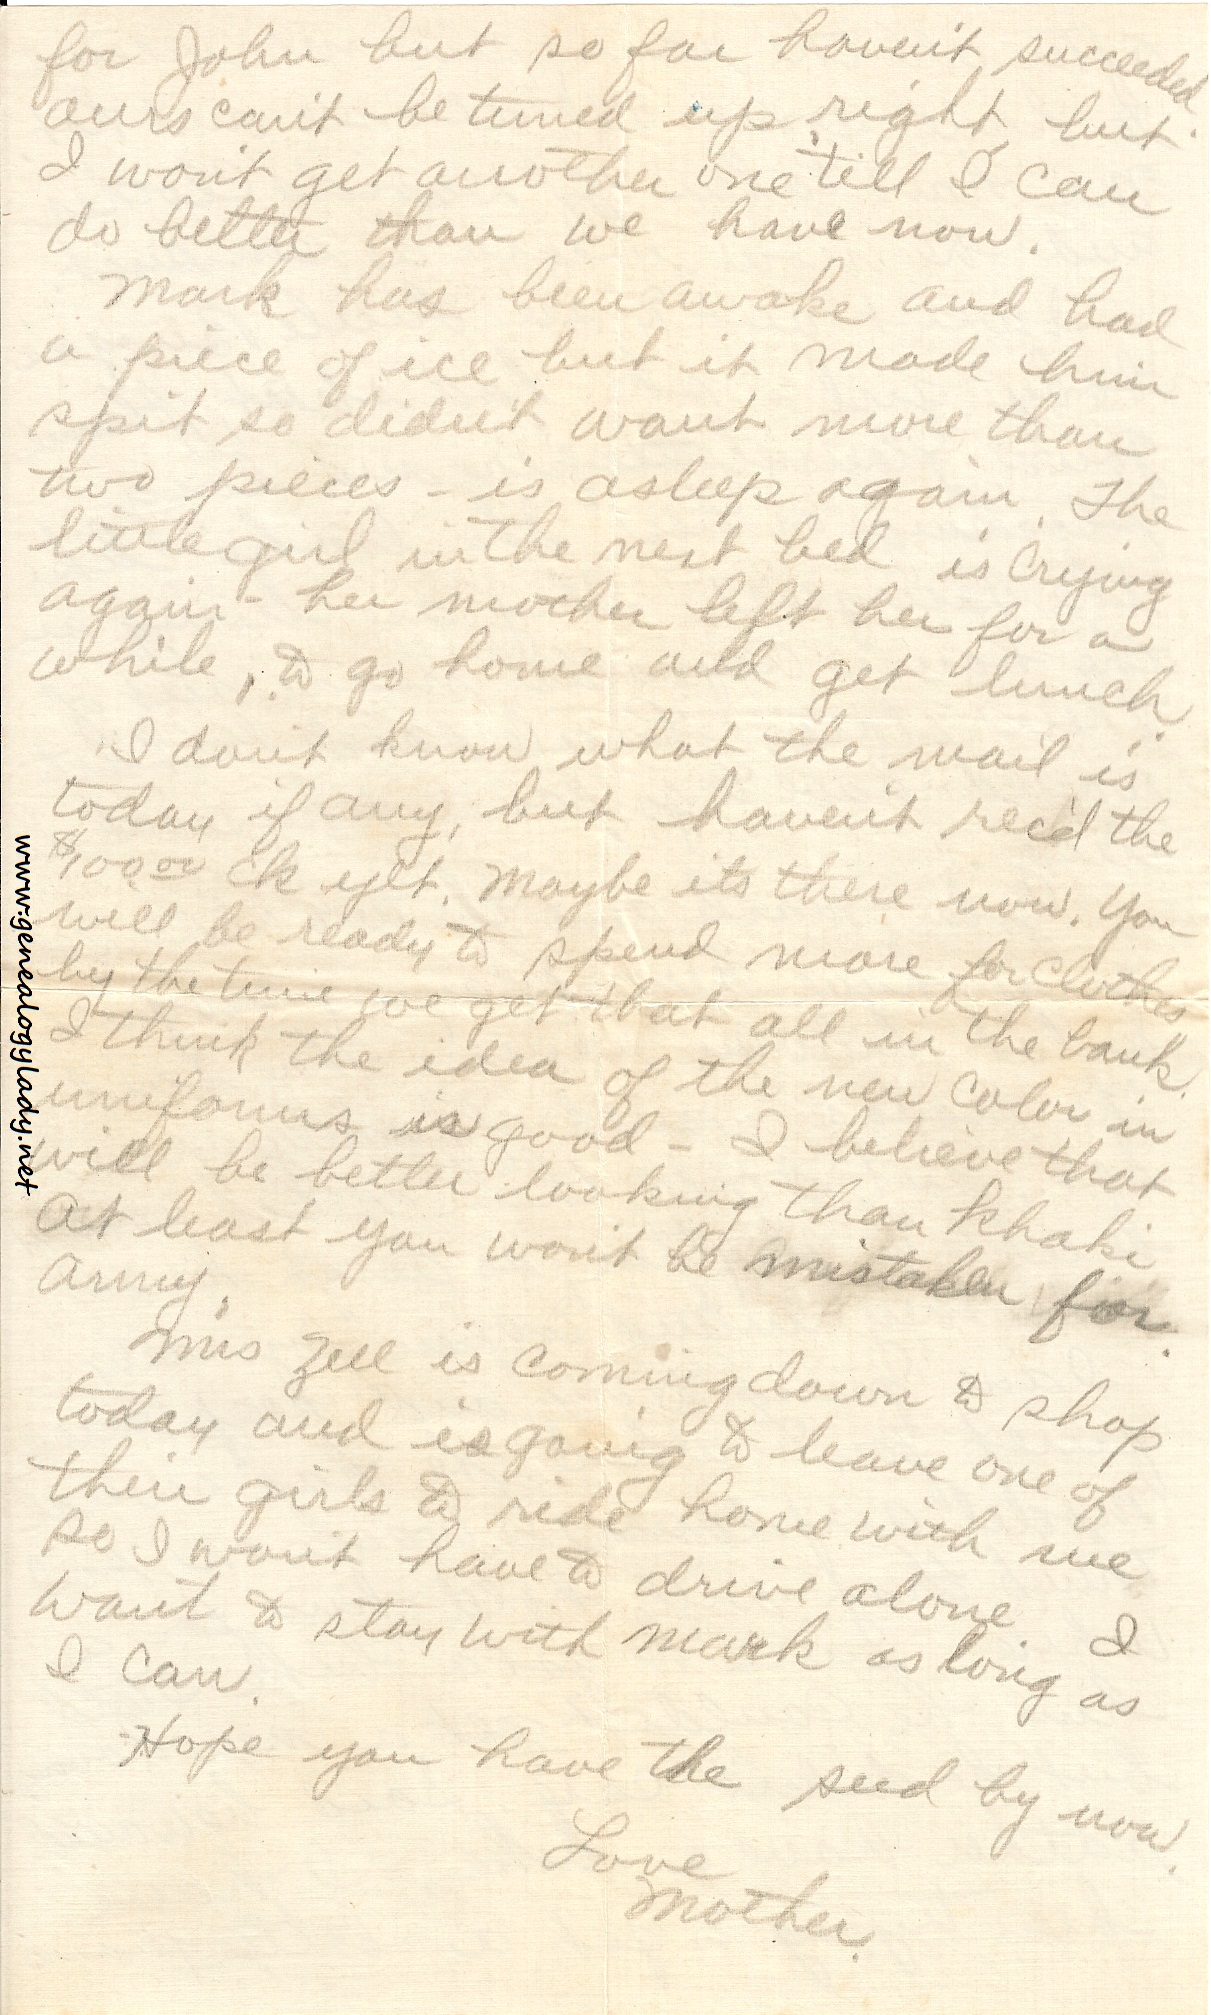 for John but so far haven't succeeded
ours can't be tuned up right but
I won't get another one till I can
do better than we have now.
Mark has been awake and had
a piece of ice but it made him
spit so didn't want more than
two pieces - is asleep again. The
little girl in the next bed is crying
again - her mother left her for a
while, to go home and get lunch.
I don't know what the mail is
today if any, but haven't rec'd the
$100.00 ck yet. Maybe its there now. You
will be ready to spend more for clothes
by the time we get that all in the bank.
I think the idea of the new color in
uniforms is good - I believe that
will be better looking than khaki
At least you won't be mistaken for
Army.
Mrs Zell is coming down to shop
today and is going to leave one of
their girls to ride home with me
so I won't have to drive alone I
want to stay with Mark as long as
I can.
Hope you have the seed by now.
Love
Mother.
www.genealogylady.net